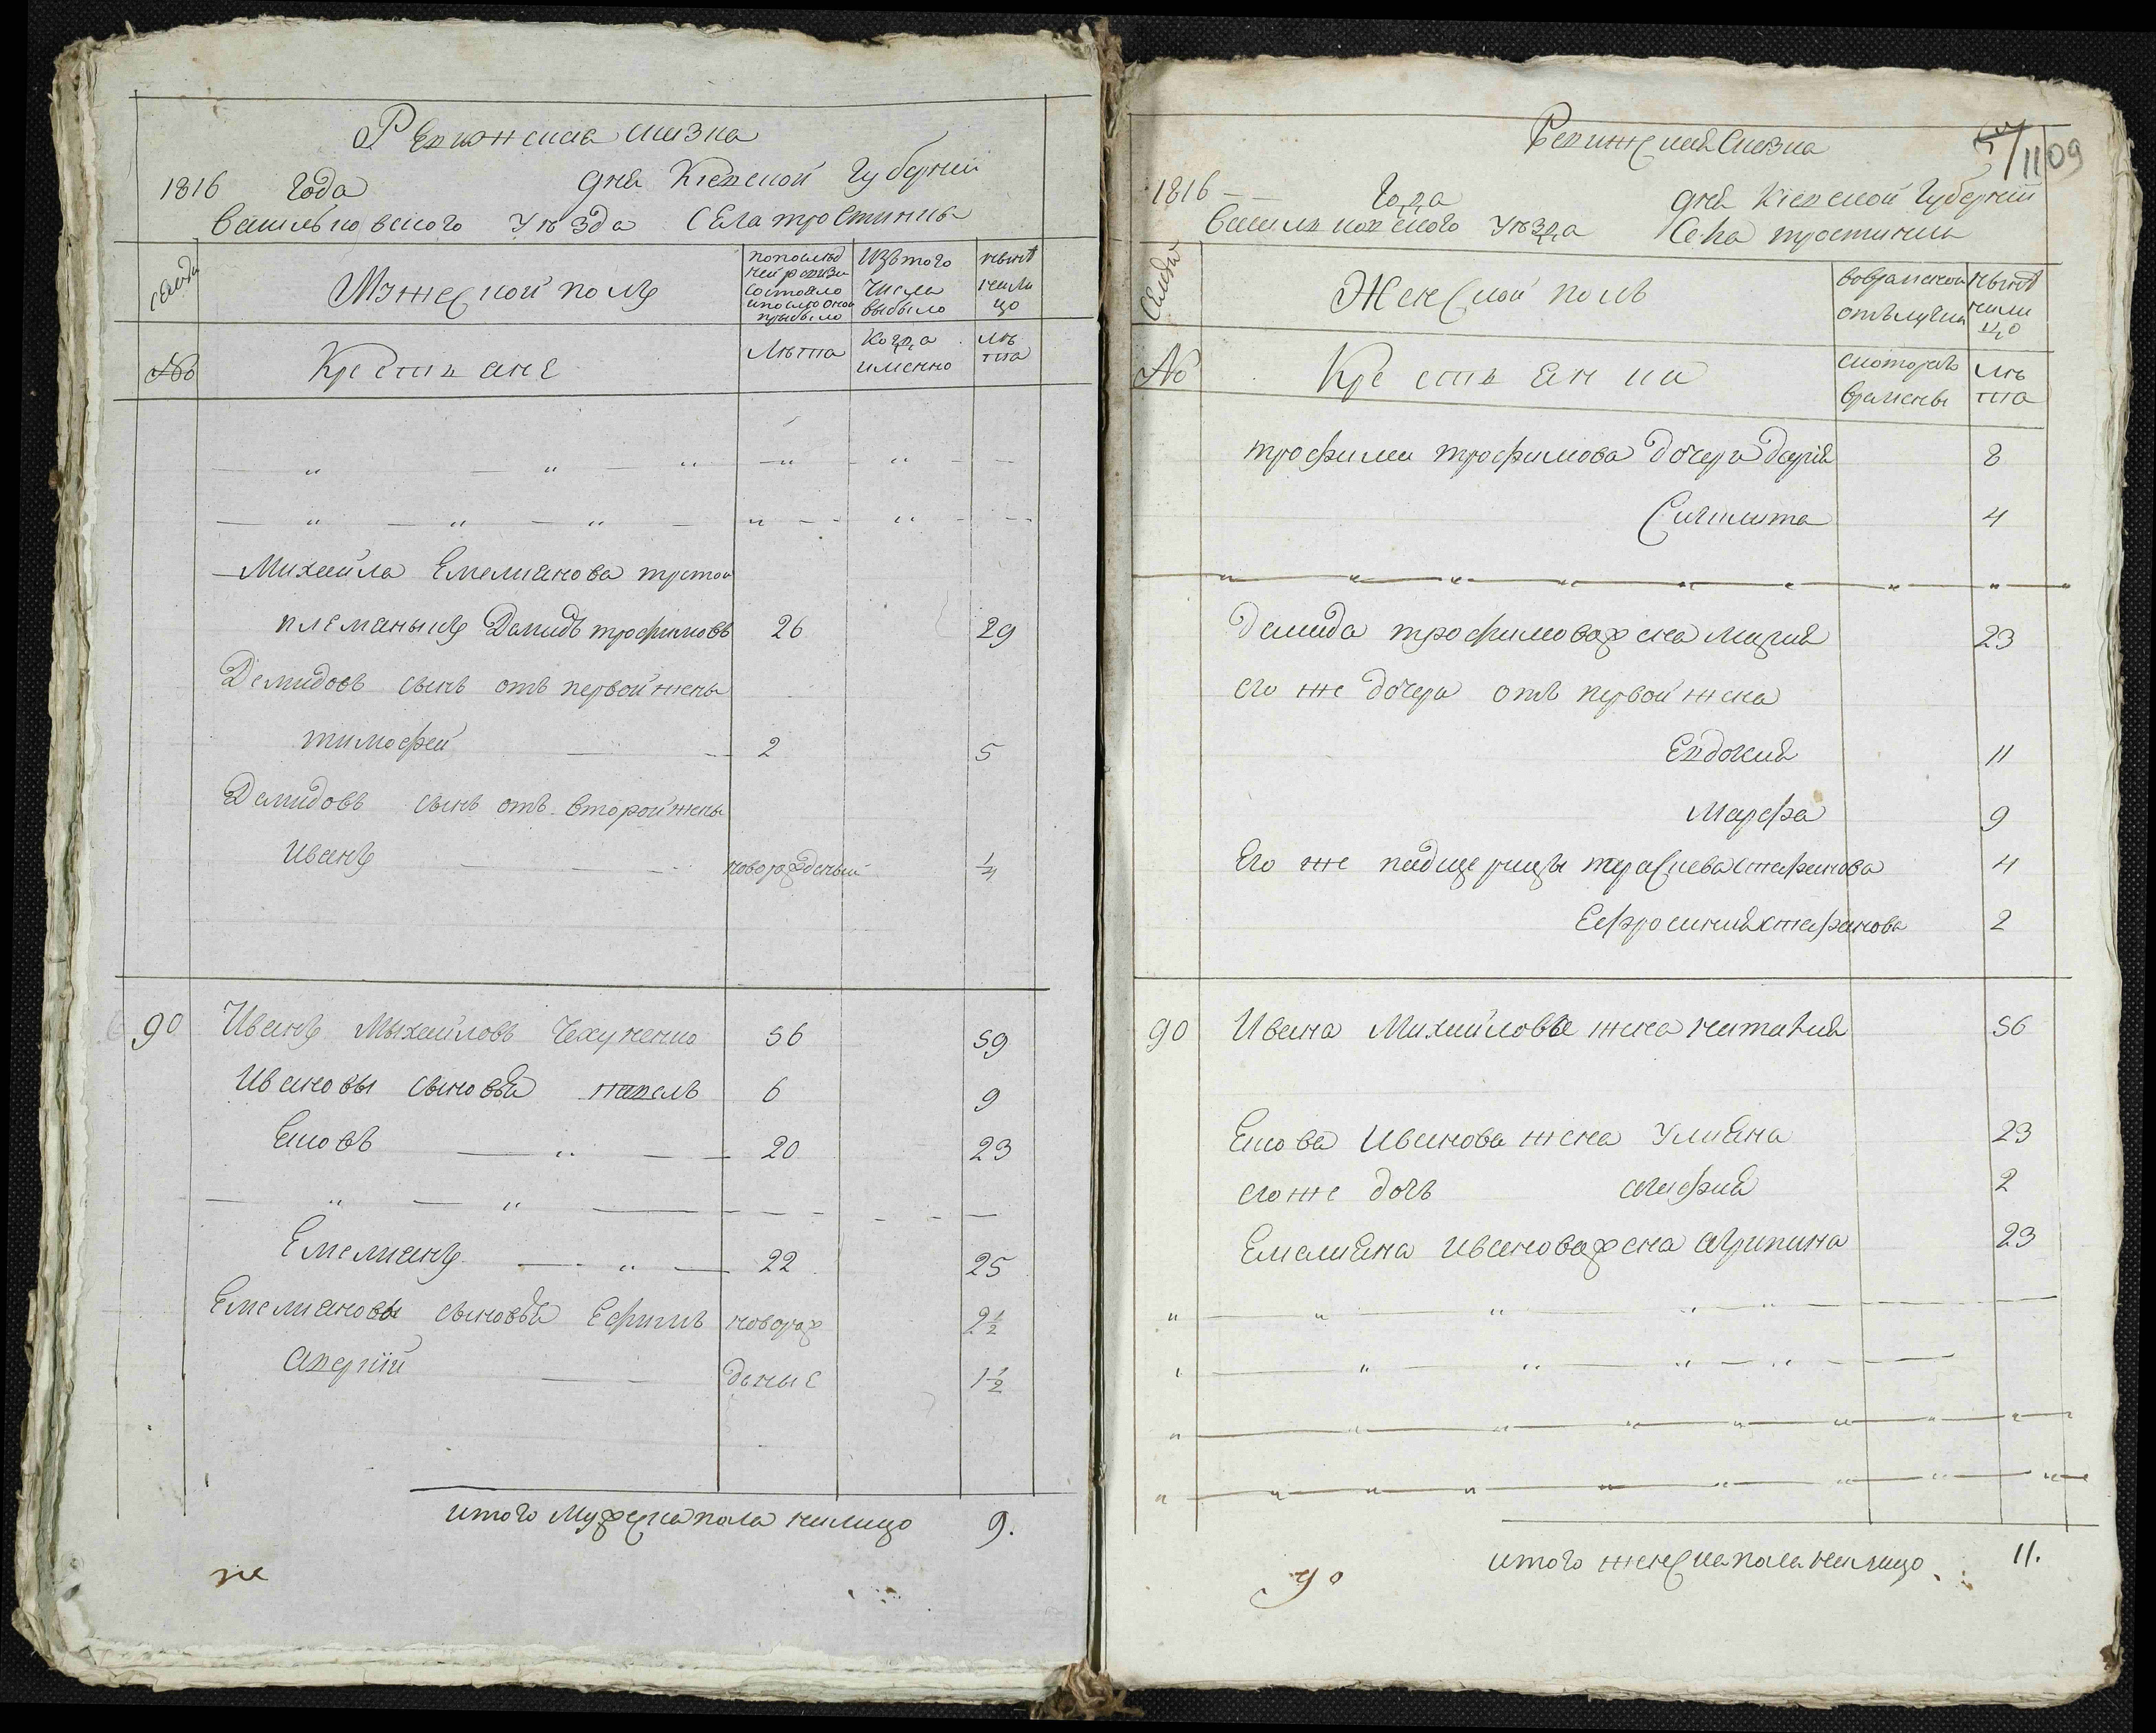 Ревижская сказка
1816 года дня Кіевской Губерніи
Васильковского Уѣзда Села тростинки
семьи
Мужеской полъ
по послѣд
ней ревизи
состояло
и после оной
прибыло
Изъ того
числа
выбыло
нынѣ
на ли
цо
№
Крестьяне
Лѣта
Когда
именно
лѣ
та
Михайла Емелианова третой
племяныкъ Демидъ трофимовъ 26 29
Демидовъ сынъ отъ первой жены
тимофей 2 5
Демидовъ сынъ отъ второй жены
Иванъ новорожденый 1/4
90 Иванъ Мыхайловъ Чехуненко 56 59
Ивановы сыновья павелъ 6 9
Еаковъ " 20 23
Емелианъ " 22 25
Емелиановы сыновья Ефимъ новорож 2 1/2
Аверкій деные 1 1/2
итого мужеска пола налицо 9.
Ревижская Сказка
1109
1816 – Года дня Кіевской Губерніи
Васильковского Уѣзда Села тростинки
Семьи
Женской полъ
во временной
отълучки
нынѣ
на ли
цо
№
Крестьянка
с которого
времены
лѣ
та
трофима трофимова дочера дарія 8
4
Демида трофимова жена Марія 23
его же дочера отъ первой жена
Евдокия 11
Марфа 9
Его же падщерицы параскева стефанова 4
Ефросиния стефанова 2
90 Ивана Михайловы жена наталия 56
Еакова Иванова жена Улияна 23
его же дочъ агафия 2
Емелияна иванова жена агрипина 23
итого женска пола налицо 11.